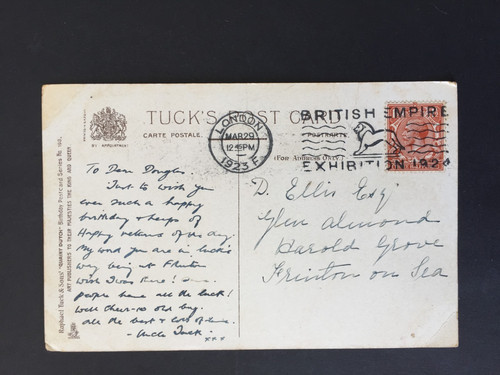 TUCK'S POST CARD
CARTE POSTALE.
POSTKARTE.
BY APPOINTMENT
(For Address Only)
LONDON
MAR 29
12.45 PM
1923 F
BRITISH EMPIRE
EXHIBITION 192
Raphael Tuck & Sons' "QUAINT DUTCH" Birthday Postcard Series No.
ART PUBLISHERS TO THEIR MAJESTIES THE KING AND QUEEN
To Dear Douglas.
Just to wish you
ever such a happy
birthday & heaps of
Happy returns of the day.
My word you are in luck's
way being at Frinton
wish I was there!
people have all the luck!
Well cheer-io old boy.
all the best & lots of love.
- Uncle Jack.
x x x
D. Ellis Esq
Glen Almond
Harold Grove
Frinton on Sea